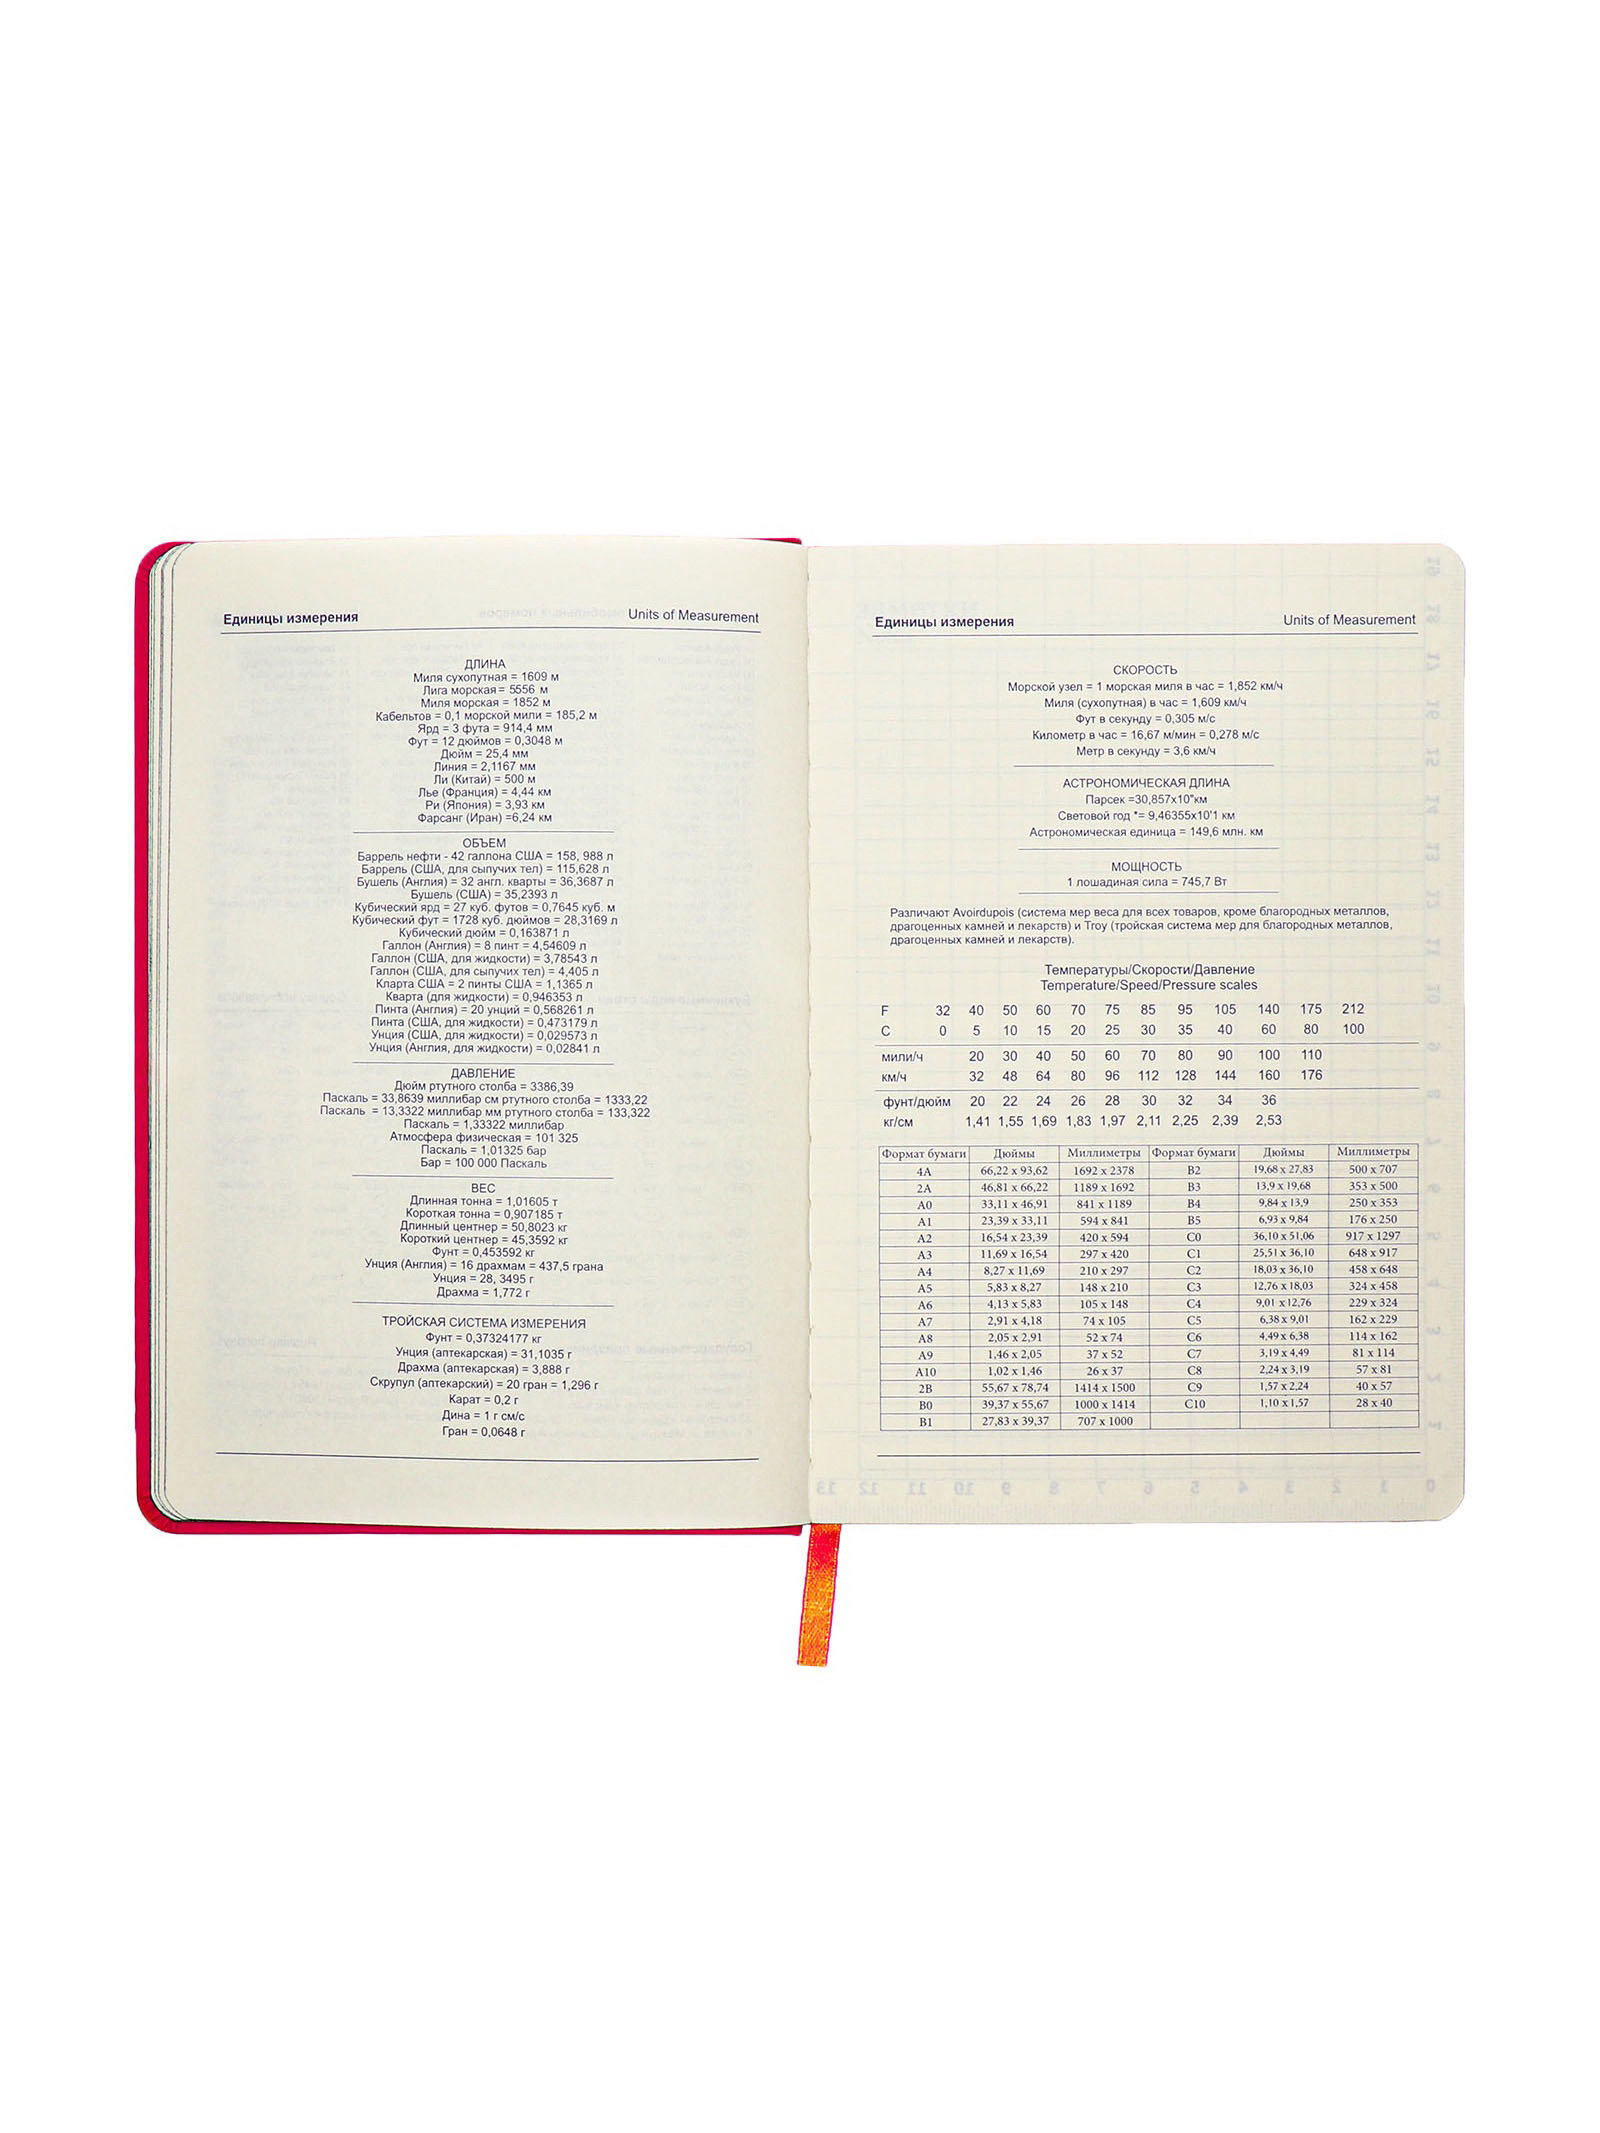 Единицы измерения Units of Measurement
ДЛИНА
Миля сухопутная = 1609 м
Лига морская = 5556 м
Миля морская = 1852 м
Кабельтов = 0,1 морской мили = 185,2 м
Ярд = 3 фута = 914,4 мм
Фут = 12 дюймов = 0,3048 м
Дюйм = 25,4 мм
Линия = 2,1167 мм
Ли (Китай) = 500 м
Лье (Франция) = 4,44 км
Ри (Япония) = 3,93 км
Фарсанг (Иран) =6,24 км
ОБЪЕМ
Баррель нефти - 42 галлона США = 158, 988 л
Баррель (США, для сыпучих тел) = 115,628 л
Бушель (Англия) = 32 англ. кварты = 36,3687 л
Бушель (США) = 35,2393 л
Кубический ярд = 27 куб. футов = 0,7645 куб. м
Кубический фут = 1728 куб. дюймов = 28,3169 л
Кубический дюйм = 0,163871 л
Галлон (Англия) = 8 пинт = 4,54609 л
Галлон (США, для жидкости) = 3,78543 л
Галлон (США, для сыпучих тел) = 4,405 л
Кларта США = 2 пинты США = 1,1365 л
Кварта (для жидкости) = 0,946353 л
Пинта (Англия) = 20 унций = 0,568261 л
Пинта (США, для жидкости) = 0,473179 л
Унция (США, для жидкости) = 0,029573 л
Унция (Англия, для жидкости) = 0,02841 л
ДАВЛЕНИЕ
Дюйм ртутного столба = 3386,39
Паскаль = 33,8639 миллибар см ртутного столба = 1333,22
Паскаль = 13,3322 миллибар мм ртутного столба = 133,322
Паскаль = 1,33322 миллибар
Атмосфера физическая = 101 325
Паскаль = 1,01325 бар
Бар = 100 000 Паскаль
ВЕС
Длинная тонна = 1,01605 т
Короткая тонна = 0,907185 т
Длинный центнер = 50,8023 кг
Короткий центнер = 45,3592 кг
Фунт = 0,453592 кг
Унция (Англия) = 16 драхмам = 437,5 грана
Унция = 28, 3495 г
Драхма = 1,772 г
ТРОЙСКАЯ СИСТЕМА ИЗМЕРЕНИЯ
Фунт = 0,37324177 кг
Унция (аптекарская) = 31,1035 г
Драхма (аптекарская) = 3,888 г
Скрупул (аптекарский) = 20 гран = 1,296 г
Карат = 0,2 г
Дина = 1 г см/с
Гран = 0,0648 г
Единицы измерения Units of Measurement
СКОРОСТЬ
Морской узел = 1 морская миля в час = 1,852 км/ч
Миля (сухопутная) в час = 1,609 км/ч
Фут в секунду = 0,305 м/с
Километр в час = 16,67 м/мин = 0,278 м/с
Метр в секунду = 3,6 км/ч
АСТРОНОМИЧЕСКАЯ ДЛИНА
Парсек =30,857х10"км
Световой год "= 9,46355х10'1 км
Астрономическая единица = 149,6 млн. км
МОЩНОСТЬ
1 лошадиная сила = 745,7 Вт
Различают Avoirdupois (система мер веса для всех товаров, кроме благородных металлов,
драгоценных камней и лекарств) и Troy (тройская система мер для благородных металлов,
драгоценных камней и лекарств).
Температуры/Скорости/Давление
Temperature/Speed/Pressure scales
F 32 40 50 60 70 75 85 95 105 140 175 212
C 0 5 10 15 20 25 30 35 40 60 80 100
мили/ч 20 30 40 50 60 70 80 90 100 110
км/ч 32 48 64 80 96 112 128 144 160 176
фунт/дюйм 20 22 24 26 28 30 32 34 36
кг/см 1,41 1,55 1,69 1,83 1,97 2,11 2,25 2,39 2,53
Формат бумаги Дюймы Миллиметры Формат бумаги Дюймы Миллиметры
4A 66,22 x 93,62 1692 x 2378 B2 19,68 x 27,83 500 x 707
2A 46,81 x 66,22 1189 x 1692 B3 13,9 x 19,68 353 x 500
A0 33,11 x 46,91 841 x 1189 B4 9,84 x 13,9 250 x 353
A1 23,39 x 33,11 594 x 841 B5 6,93 x 9,84 176 x 250
A2 16,54 x 23,39 420 x 594 C0 36,10 x 51,06 917 x 1297
A3 11,69 x 16,54 297 x 420 C1 25,51 x 36,10 648 x 917
A4 8,27 x 11,69 210 x 297 C2 18,03 x 36,10 458 x 648
A5 5,83 x 8,27 148 x 210 C3 12,76 x 18,03 324 x 458
A6 4,13 x 5,83 105 x 148 C4 9,01 x 12,76 229 x 324
A7 2,91 x 4,18 74 x 105 C5 6,38 x 9,01 162 x 229
A8 2,05 x 2,91 52 x 74 C6 4,49 x 6,38 114 x 162
A9 1,46 x 2,05 37 x 52 C7 3,19 x 4,49 81 x 114
A10 1,02 x 1,46 26 x 37 C8 2,24 x 3,19 57 x 81
2B 55,67 x 78,74 1414 x 1500 C9 1,57 x 2,24 40 x 57
B0 39,37 x 55,67 1000 x 1414 C10 1,10 x 1,57 28 x 40
B1 27,83 x 39,37 707 x 1000